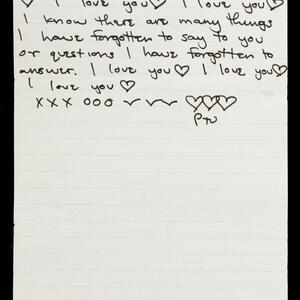 ♡ I love you♡ I love you♡
I know there are many things
I have forgotten to say to you
or questions I have forgotten to
answer. I love you♡ I love you♡
I love you ♡
xxx ooo ♡♡♡